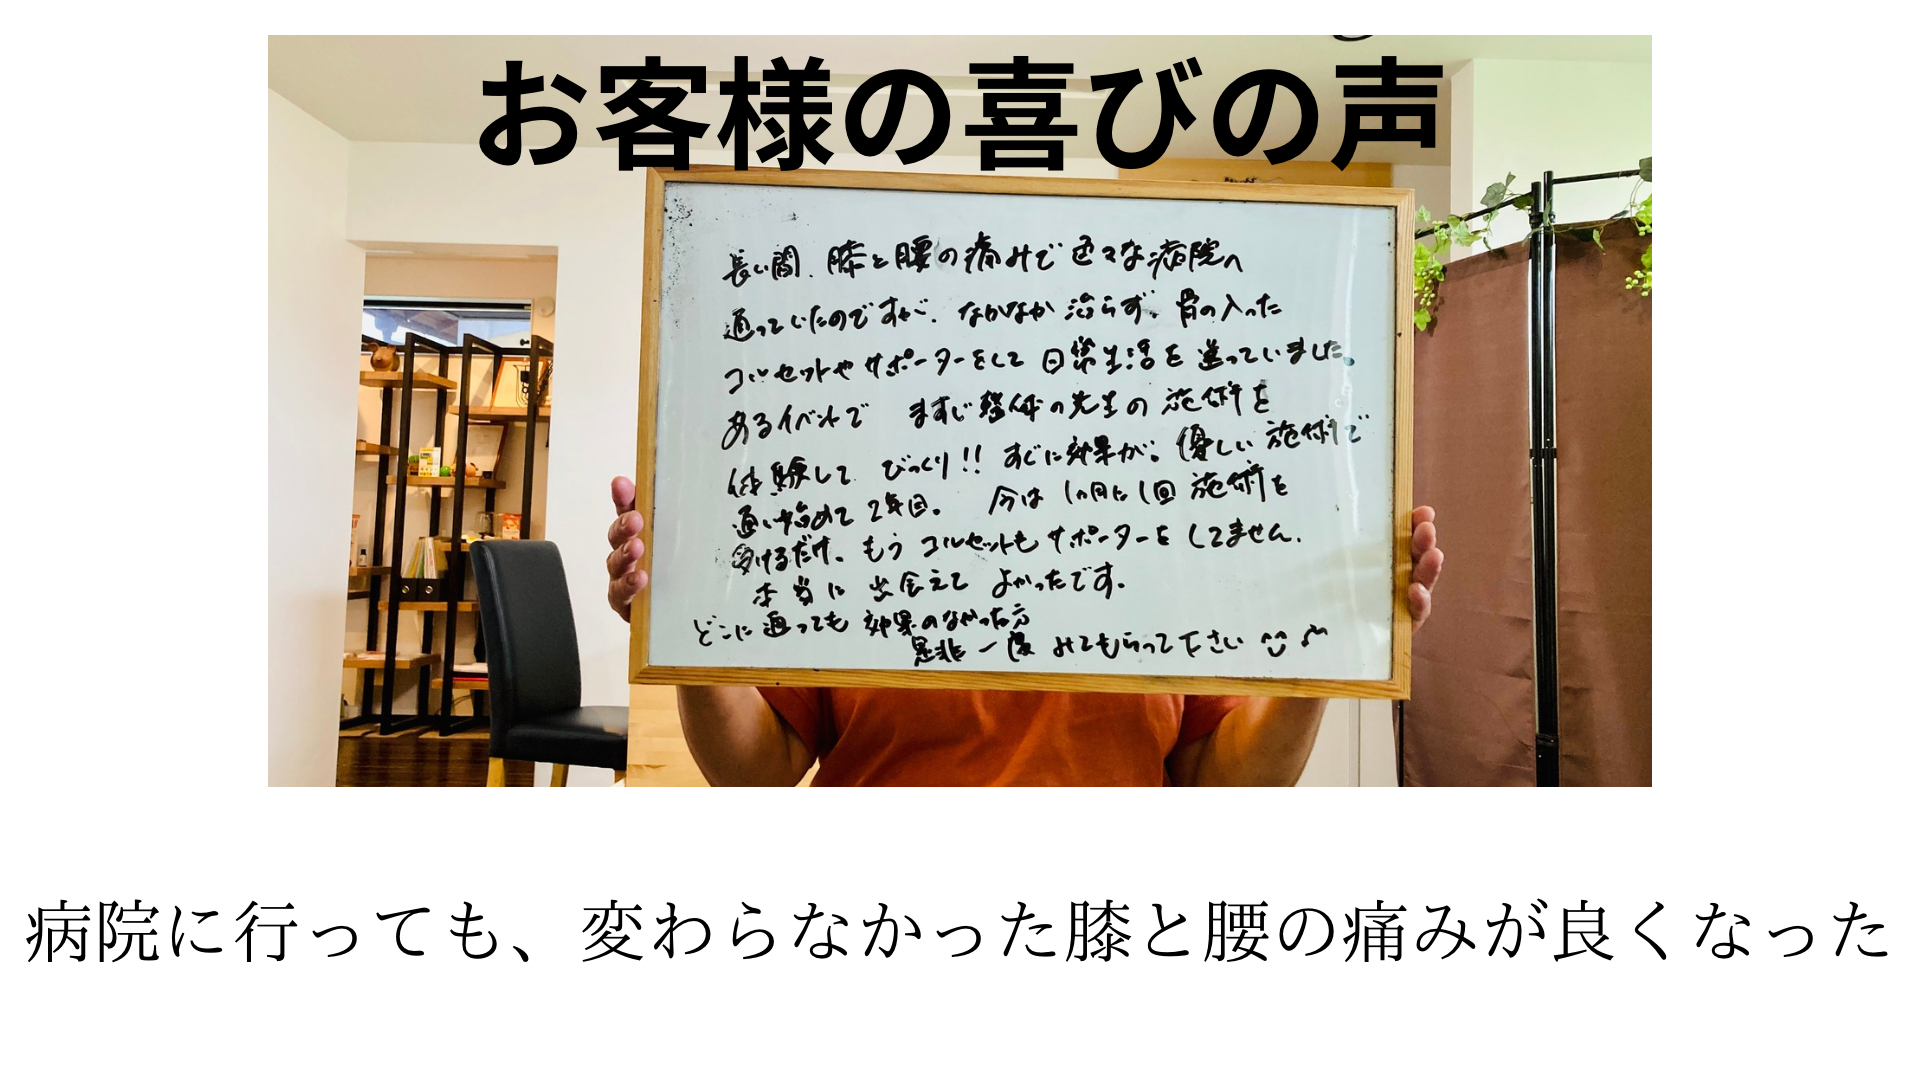 お客様の喜びの声
長い間、膝と腰の痛みで色々な病院へ
通っていたのですが、なかなか治らず、骨の入った
コルセットやサポーターをして日常生活を送っていました。
あるイベントで ますじ整体の先生の施術を
体験して びっくり!! すぐに効果が。優しい施術で
通い始めて2年目。 今は1ヵ月に1回施術を
受けるだけ。もうコルセットもサポーターをしてません。
本当に出会えてよかったです。
どこに通っても効果のなかった方
是非一度みてもらって下さい
病院に行っても、変わらなかった膝と腰の痛みが良くなった